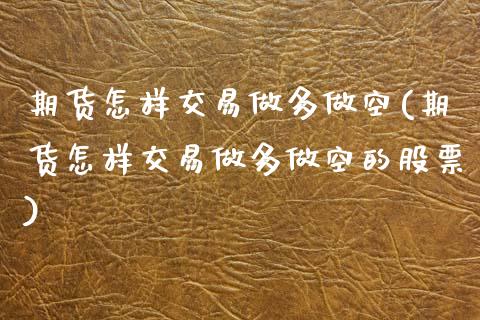 期货怎样交易做多做空(期
货怎样交易做多做空的股票
)